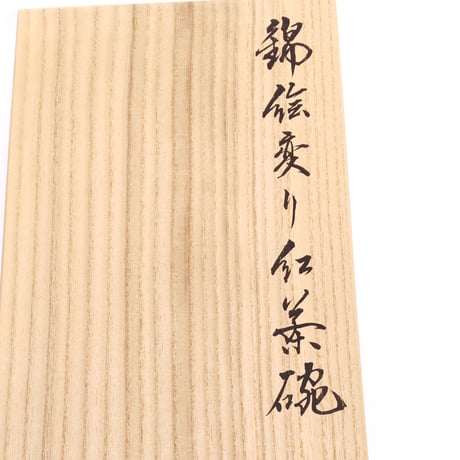 錦絵変り紅茶碗